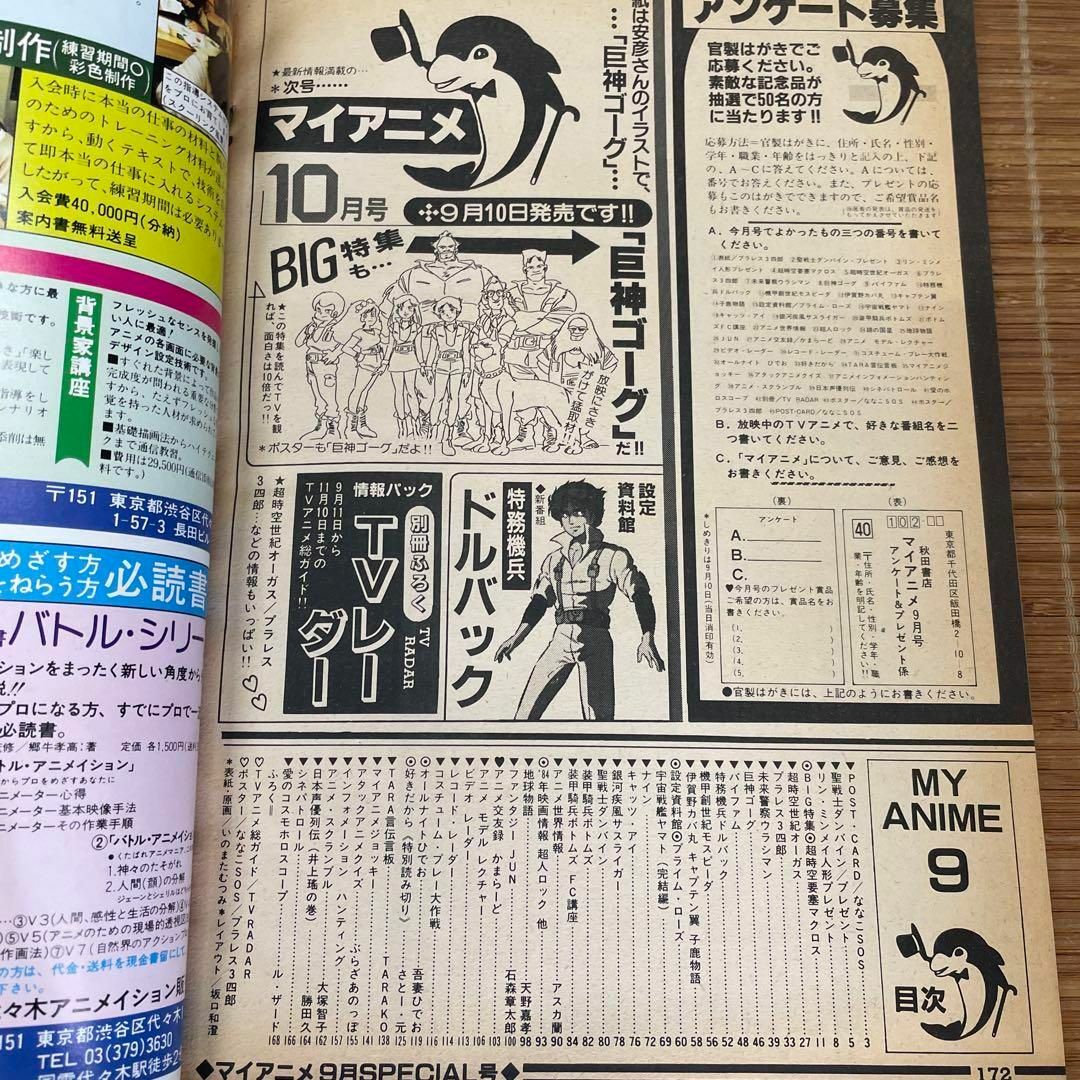 アンケート募集
官製はがきでご
応募ください。
素敵な記念品が
抽選で50名の方
に当たります!!
応募方法=官製はがきに、住所・氏名・性別・
学年・職業・年齢をはっきりと記入の上、下記
の、A~Cに答えてください。Aについては、
番号でお答えください。また、プレゼントの応
募もこのはがきでできますので、ご希望賞品名
もお書きください。
A.今月号でよかったもの三つの番号を書いて
ください。
B.放映中のTVアニメで、好きな番組名を二
つ書いてください。
C.「マイアニメ」について、ご意見、ご感想を
お書きください。
(裏)
アンケート
A.
B.
C.
♥今月号のプレゼント賞品
ご希望の方は、賞品名をお
書きください。
(1.
(2.
(3.
(4.
(5.
(表)
40
102-□□
東京都千代田区飯田橋2-10-8
秋田書店
マイアニメ9月号
アンケート&プレゼント係
〒住所・氏名・性別・学年・職
業・年齢を明記してください!!
*しめきりは9月10日(当日消印有効)
●官製はがきには、上記のようにお書きください。
紙は安彦さんのイラストで、
…「巨神ゴーグ」…
★最新情報満載の…
*次号……
マイアニメ
10月号
9月10日発売です!!
BIG特集も…
「巨神ゴーグ」だ!!
放映にさき
がけて猛取材!!
★この特集を読んでTVを観
れば、面白さは10倍だっ!!
*ポスターも「巨神ゴーグ」だよ!!
設定
資料館
◆新番組
特務機兵
ドルバック
情報パック
別冊ふろく
TV RADAR
TVレーダー
9月11日から
11月10日までの
TVアニメ総ガイド!!
★超時空世紀オーガス/プラレス
3四郎…などの情報もいっぱい!!
MY
ANIME
9
目次
POST CARD/ななこSOS 3
聖戦士ダンバイン/プレゼント 5
リン・ミンメイ人形プレゼント 8
◎BIG特集◎超時空要塞マクロス 11
超時空世紀オーガス 27
プラレス3四郎 33
未来警察ウラシマン 38
巨神ゴーグ 44
バイファム 46
特務機兵ドルバック 48
機甲創世紀モスピーダ 52
伊賀野カバ丸 キャプテン翼 子鹿物語 56
◎設定資料館◎プライム・ローズ 60
宇宙戦艦ヤマト(完結編) 66
ナイン 69
キャッツ・アイ 72
銀河疾風サスライガー 76
聖戦士ダンバイン 77
装甲騎兵ボトムズ 80
装甲騎兵ボトムズ FC講座 84
アニメ世界情報 アスカ蘭 90
'84年映画情報 超人ロック 他 93
地球物語 天野嘉孝 98
ファンタジー JUN 石森章太郎 100
♥アニメ交友録 かまらーど 103
アニメ モデル レクチャー 106
ビデオ レーダー 113
レコード レーダー 114
コスチューム・プレー大作戦 116
オールナイトひでお 吾妻ひでお 119
◎好きだから(特別読み切り) さとー・元 125
TARA宣伝板 TARAKO 138
マイアニメジョッキー 141
アタックアニメクイズ ぶらざあのっぽ 155
インフォメーション ハンティング 157
アニメ・スクランブル 159
日本声優列伝(井上瑤の巻) 大塚智子 162
シネパトロール 勝田久 164
愛のコスモホロスコープ ル・ザード 168
ふろく
♡TVアニメ総ガイド/TV RADAR
♡ポスター/ななこSOS/プラレス3四郎
*表紙・原画/いのまたむつみ*レイアウト/坂口和澄
◆マイアニメ9月SPECIAL号◆
172
制作(練習期間〇
彩色制作
入会時に本当の仕事の材料と
のためのトレーニング材料が
すから、動くテキストで、技術を
て即本当の仕事に入れるシステム
したがって、練習期間は必要あり
入会費40,000円(分納)
案内書無料送呈
背景家講座
フレッシュなセンスを
い人に最適!
アニメの各画面に必要な
デザイン設定技術です。
■すぐれた背景によって
完成度が問われる重要な
すから、たえずフレッシュ
覚を持った人材が求め
■基礎描画法からハイテクニッ
クまで通信教育。
■費用は29,500円(通信添削
料です。)
〒151 東京都渋谷区代々
1-57-3 長田ビル
めざす方
をねらう方 必読書
バトル・シリー
ションをまったく新しい角度から
説!!
プロになる方、すでにプロで
必読書。
修/郷牛孝高:著 定価 各1,500円
トル・アニメイション」
からプロをめざすあなたに
ニメーター心得
ニメーター基本映像手法
ニメーターその作業手順
②「バトル・アニメイシ
1.神々のたそがれ
2.人間(顔)の分解
…③V3(人間、感性と生活の分解)
⑤V5(アニメのための現場的透視図
作画法)⑦V7(自然界のアクション
の方は、代金・送料を現金書留にて、
下さい。
々木アニメイション販
151 東京都渋谷区代々木
TEL 03(379)3630
国電代々木駅徒歩2